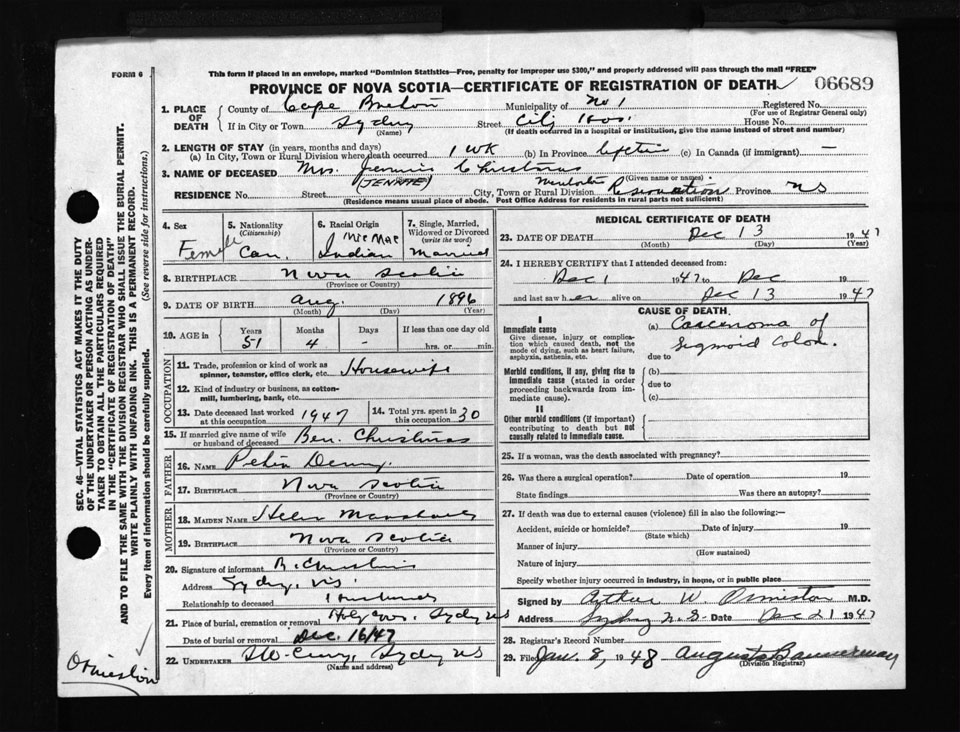 FORM 6
This form if placed in an envelope, marked "Dominion Statistics—Free, penalty for improper use $300," and properly addressed will pass through the mail "FREE"
PROVINCE OF NOVA SCOTIA—CERTIFICATE OF REGISTRATION OF DEATH 06689
1. PLACE OF DEATH
County of Cape Breton Municipality of No 1 Registered No.
(For use of Registrar General only)
If in City or Town Sydney Street City Hos. House No.
(Name) (If death occurred in a hospital or institution, give the name instead of street and number)
2. LENGTH OF STAY (in years, months and days)
(a) In City, Town or Rural Division where death occurred 1 wk (b) In Province lifetime (c) In Canada (if immigrant) —
3. NAME OF DECEASED Mrs. Jennie Christmas
(JENNIE) (Given name or names)
RESIDENCE No. Street City, Town or Rural Division Reservation Province NS
(Residence means usual place of abode. Post Office Address for residents in rural parts not sufficient)
4. Sex
Female
5. Nationality
(Citizenship)
Can.
6. Racial Origin
Mic Mac
Indian
7. Single, Married, Widowed or Divorced
(write the word)
Married
8. BIRTHPLACE Nova Scotia
(Province or Country)
9. DATE OF BIRTH Aug. 1896
(Month) (Day) (Year)
10. AGE in
Years Months Days If less than one day old
51 4 - hrs. or min.
OCCUPATION
11. Trade, profession or kind of work as spinner, teamster, office clerk, etc. Housewife
12. Kind of industry or business, as cotton-mill, lumbering, bank, etc.
13. Date deceased last worked at this occupation 1947
14. Total yrs. spent in this occupation 30
15. If married give name of wife or husband of deceased Ben. Christmas
FATHER
16. NAME Peter Denny.
17. BIRTHPLACE Nova Scotia
(Province or Country)
MOTHER
18. MAIDEN NAME Helen
19. BIRTHPLACE Nova Scotia
(Province or Country)
20. Signature of informant B. Christmas
Address Sydney, NS.
Relationship to deceased Husband
21. Place of burial, cremation or removal Holy Sydney NS
Date of burial or removal Dec. 16/47
22. UNDERTAKER Sydney NS
(Name and address)
MEDICAL CERTIFICATE OF DEATH
23. DATE OF DEATH Dec 13 1947
(Month) (Day) (Year)
24. I HEREBY CERTIFY that I attended deceased from:
Dec 1 1947 to Dec 19
and last saw her alive on Dec 13 1947
CAUSE OF DEATH
I
Immediate cause
Give disease, injury or complication which caused death, not the mode of dying, such as heart failure, asphyxia, asthenia, etc.
(a) Carcenoma of
Sigmoid Colon.
due to
Morbid conditions, if any, giving rise to immediate cause (stated in order proceeding backwards from immediate cause).
(b)
due to
(c)
II
Other morbid conditions (if important) contributing to death but not causally related to immediate cause.
25. If a woman, was the death associated with pregnancy?
26. Was there a surgical operation? Date of operation 19
State findings Was there an autopsy?
27. If death was due to external causes (violence) fill in also the following:—
Accident, suicide or homicide? Date of injury 19
(State which)
Manner of injury
(How sustained)
Nature of injury
Specify whether injury occurred in industry, in home, or in public place
Signed by Arthur W. Ormiston M.D.
Address Sydney N.S. Date Dec 21 1947
28. Registrar's Record Number
29. Filed Jan. 8, 1948 Augusta Bannerman
(Division Registrar)
SEC. 46—VITAL STATISTICS ACT MAKES IT THE DUTY
OF THE UNDERTAKER OR PERSON ACTING AS UNDER-
TAKER TO OBTAIN ALL THE PARTICULARS REQUIRED
IN THE "CERTIFICATE OF REGISTRATION OF DEATH"
AND TO FILE THE SAME WITH THE DIVISION REGISTRAR WHO SHALL ISSUE THE BURIAL PERMIT.
WRITE PLAINLY WITH UNFADING INK. THIS IS A PERMANENT RECORD.
Every item of information should be carefully supplied. (See reverse side for instructions.)
Ormiston